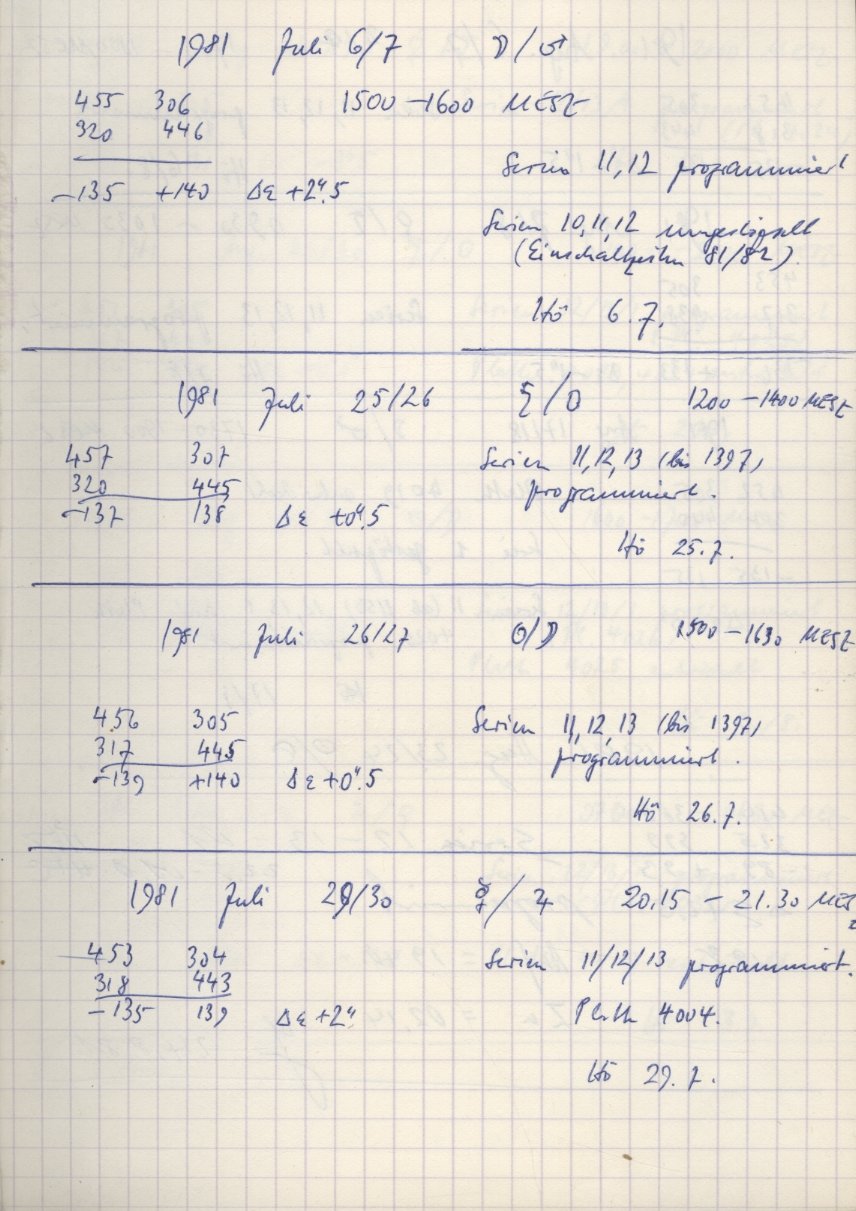 1981 Juli 6/7 ☽/♂
455 306 1500 – 1600 MESZ
320 446
Serien 11,12 programmiert
–135 +140 Δε +2",5
Serien 10,11,12
(81/82).
Hö 6.7.
1981 Juli 25/26 /☉ 1200 – 1400 MESZ
457 307 Serien 11,12,13 (bis 1397)
320 445 programmiert.
–137 138 Δε +0",5
Hö 25.7.
1981 Juli 26/27 ☉/☽ 1500 – 1630 MESZ
456 305 Serien 11,12,13 (bis 1397)
317 445 programmiert.
–139 +140 Δε +0",5
Hö 26.7.
1981 Juli 29/30 ☿/♃ 20.15 – 21.30 MESZ
453 304 Serien 11/12/13 programmiert.
318 443
–135 139 Δε +2" Platte 4004.
Hö 29.7.